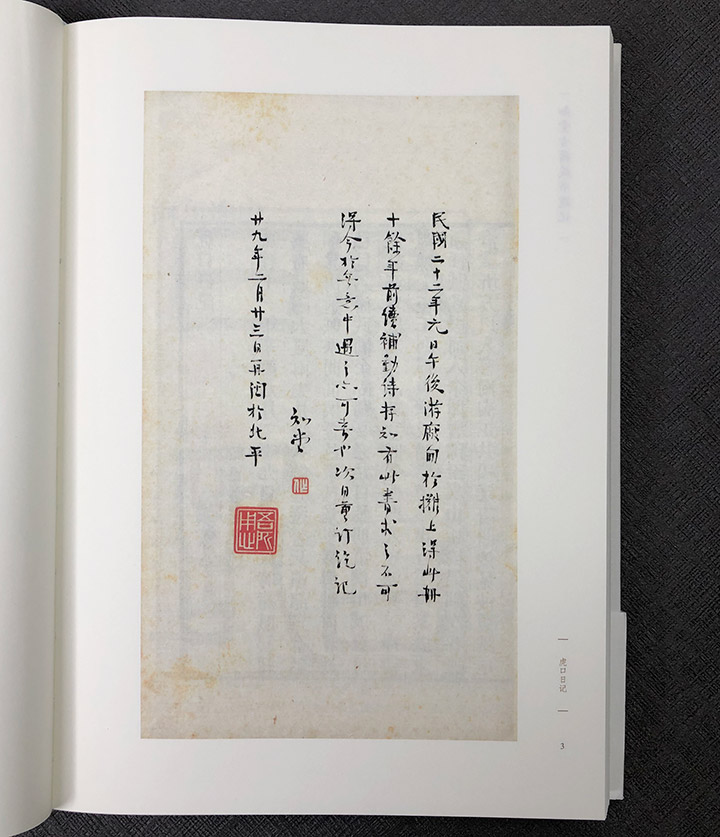 民國二十二年元日午後游厰甸於攤上得此冊
十餘年前讀補勤詩存知有此書求之不可
得今於無意中遇之亦可喜也次日重訂訖記
知堂
廿九年二月廿三日再閱於北平
虎口日记
3